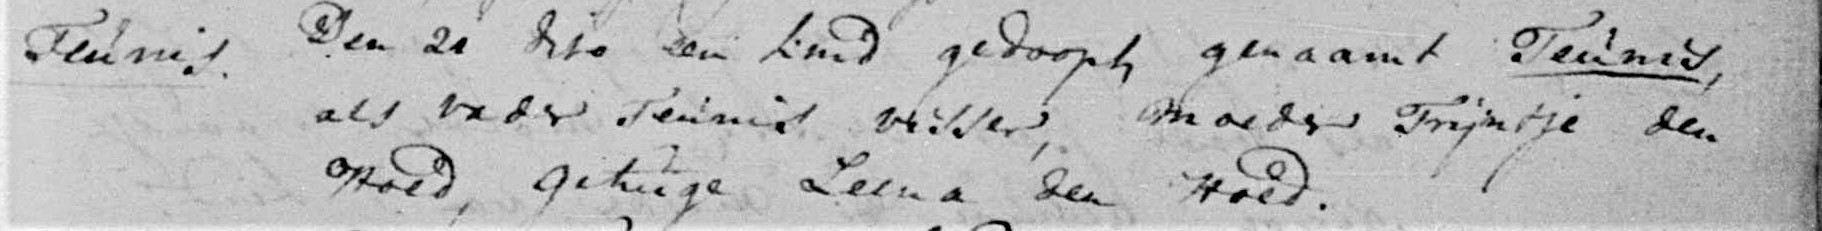 Teunis. Den 21 dito een kind gedoopt, genaamt Teunis,
als vader Teunis visser, moeder Trijntje den
Hoed, getuige Leena den Hoed.